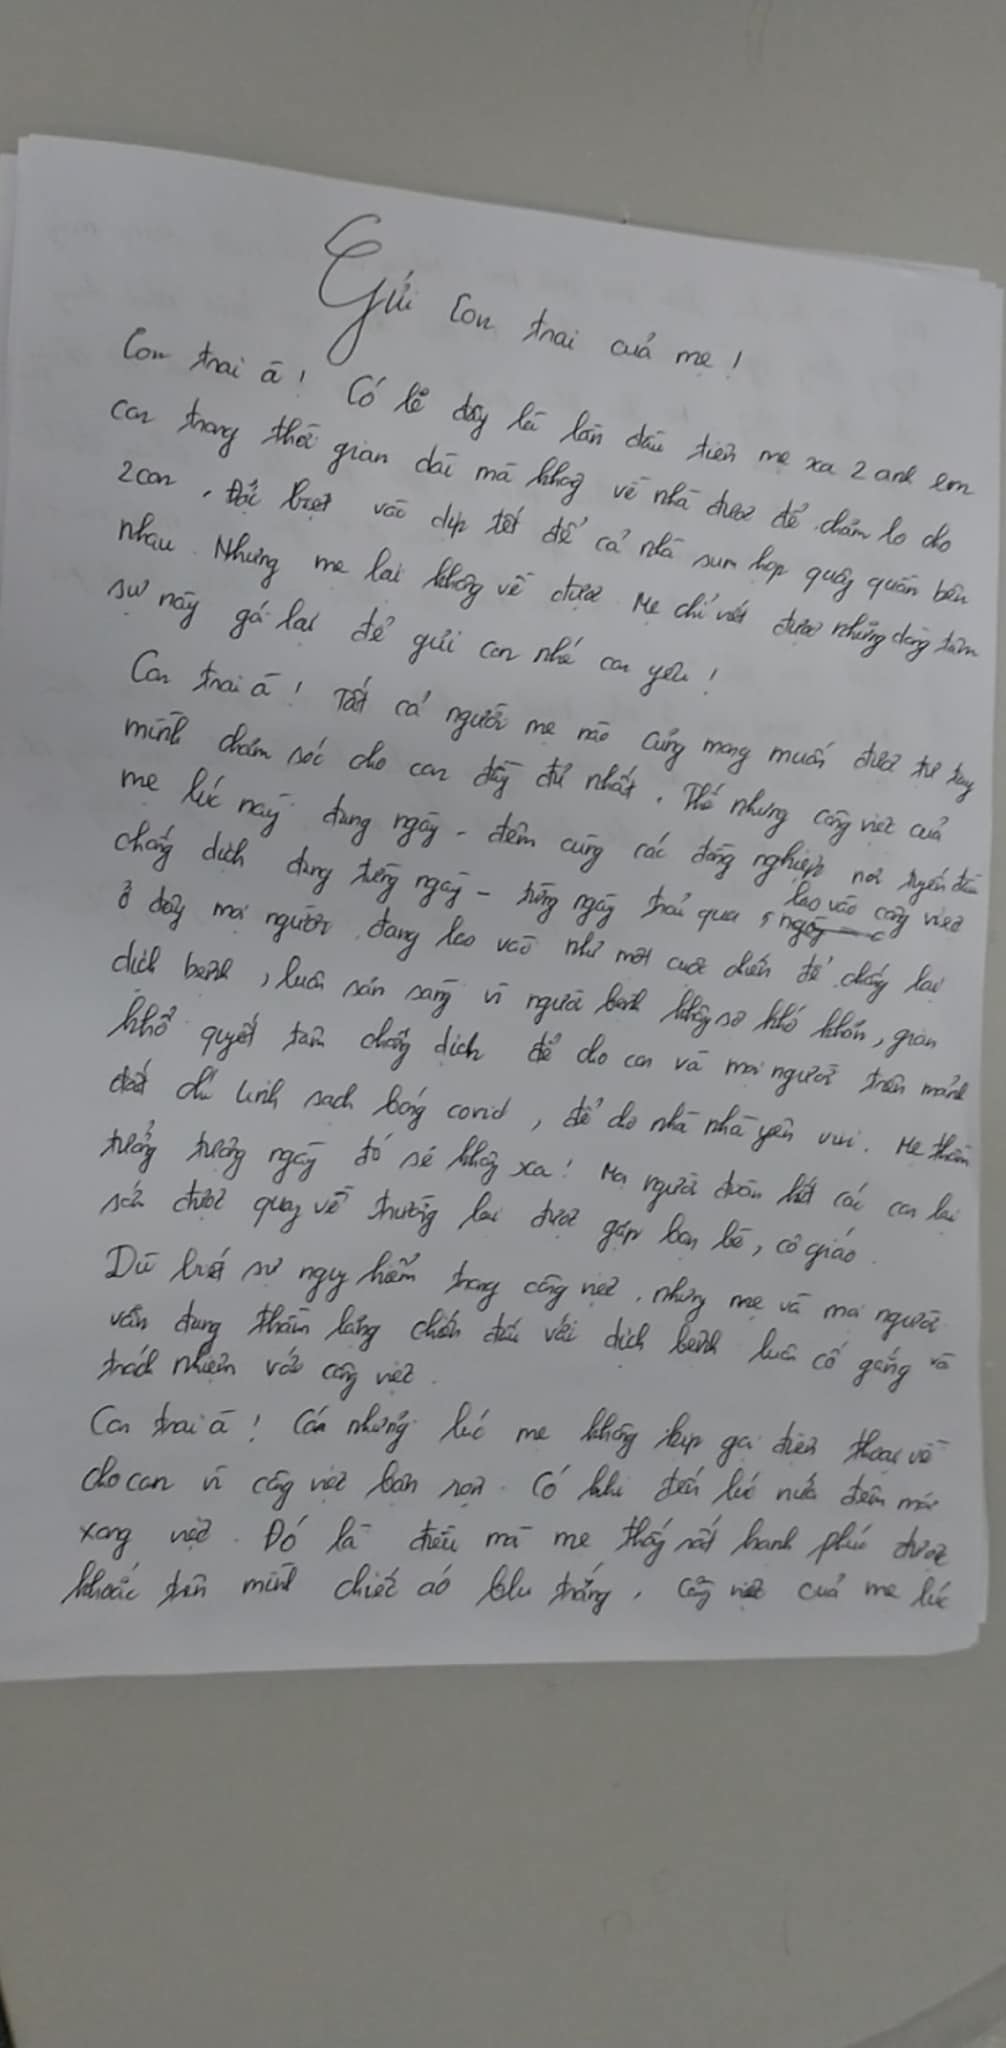 Gửi con trai của mẹ!
Con trai à! Có lẽ đây là lần đầu tiên mẹ xa 2 anh em
con trong thời gian dài mà không về nhà được để chăm lo cho
2 con, Đặc biệt vào dịp tết để cả nhà sum họp quây quần bên
nhau. Nhưng mẹ lại không về được. Mẹ chỉ viết được những dòng tâm
sự này gói lại để gửi con nhé con yêu!
Con trai à! Tất cả người mẹ nào cũng mong muốn được tự tay
mình chăm sóc cho con đầy đủ nhất. Thế nhưng công việc của
mẹ lúc này đang ngày - đêm cùng các đồng nghiệp nơi tuyến đầu
chống dịch đang từng ngày - từng ngày trải qua, lao vào công việc
ở đây mọi người đang lao vào như một cuộc chiến để chống lại
dịch bệnh, luôn sẵn sàng vì người bệnh không sợ khó khăn, gian
khổ quyết tâm chống dịch để cho con và mọi người trên mảnh
đất chí linh sạch bóng covid, để cho nhà nhà yên vui. Mẹ thầm
tưởng tượng ngày đó sẽ không xa! Mọi người đoàn kết các con lại
sớm được quay về trường lại được gặp bạn bè, cô giáo.
Dù biết sự nguy hiểm trong công việc, nhưng mẹ và mọi người
vẫn đang thầm lặng chiến đấu với dịch bệnh luôn cố gắng và
trách nhiệm với công việc.
Con trai à! Có những lúc mẹ không kịp gọi điện thoại về
cho con vì công việc bận rộn. Có khi đến lúc nửa đêm mới
xong việc. Đó là điều mà mẹ thấy rất hạnh phúc được
khoác trên mình chiếc áo blu trắng, công việc của mẹ lúc